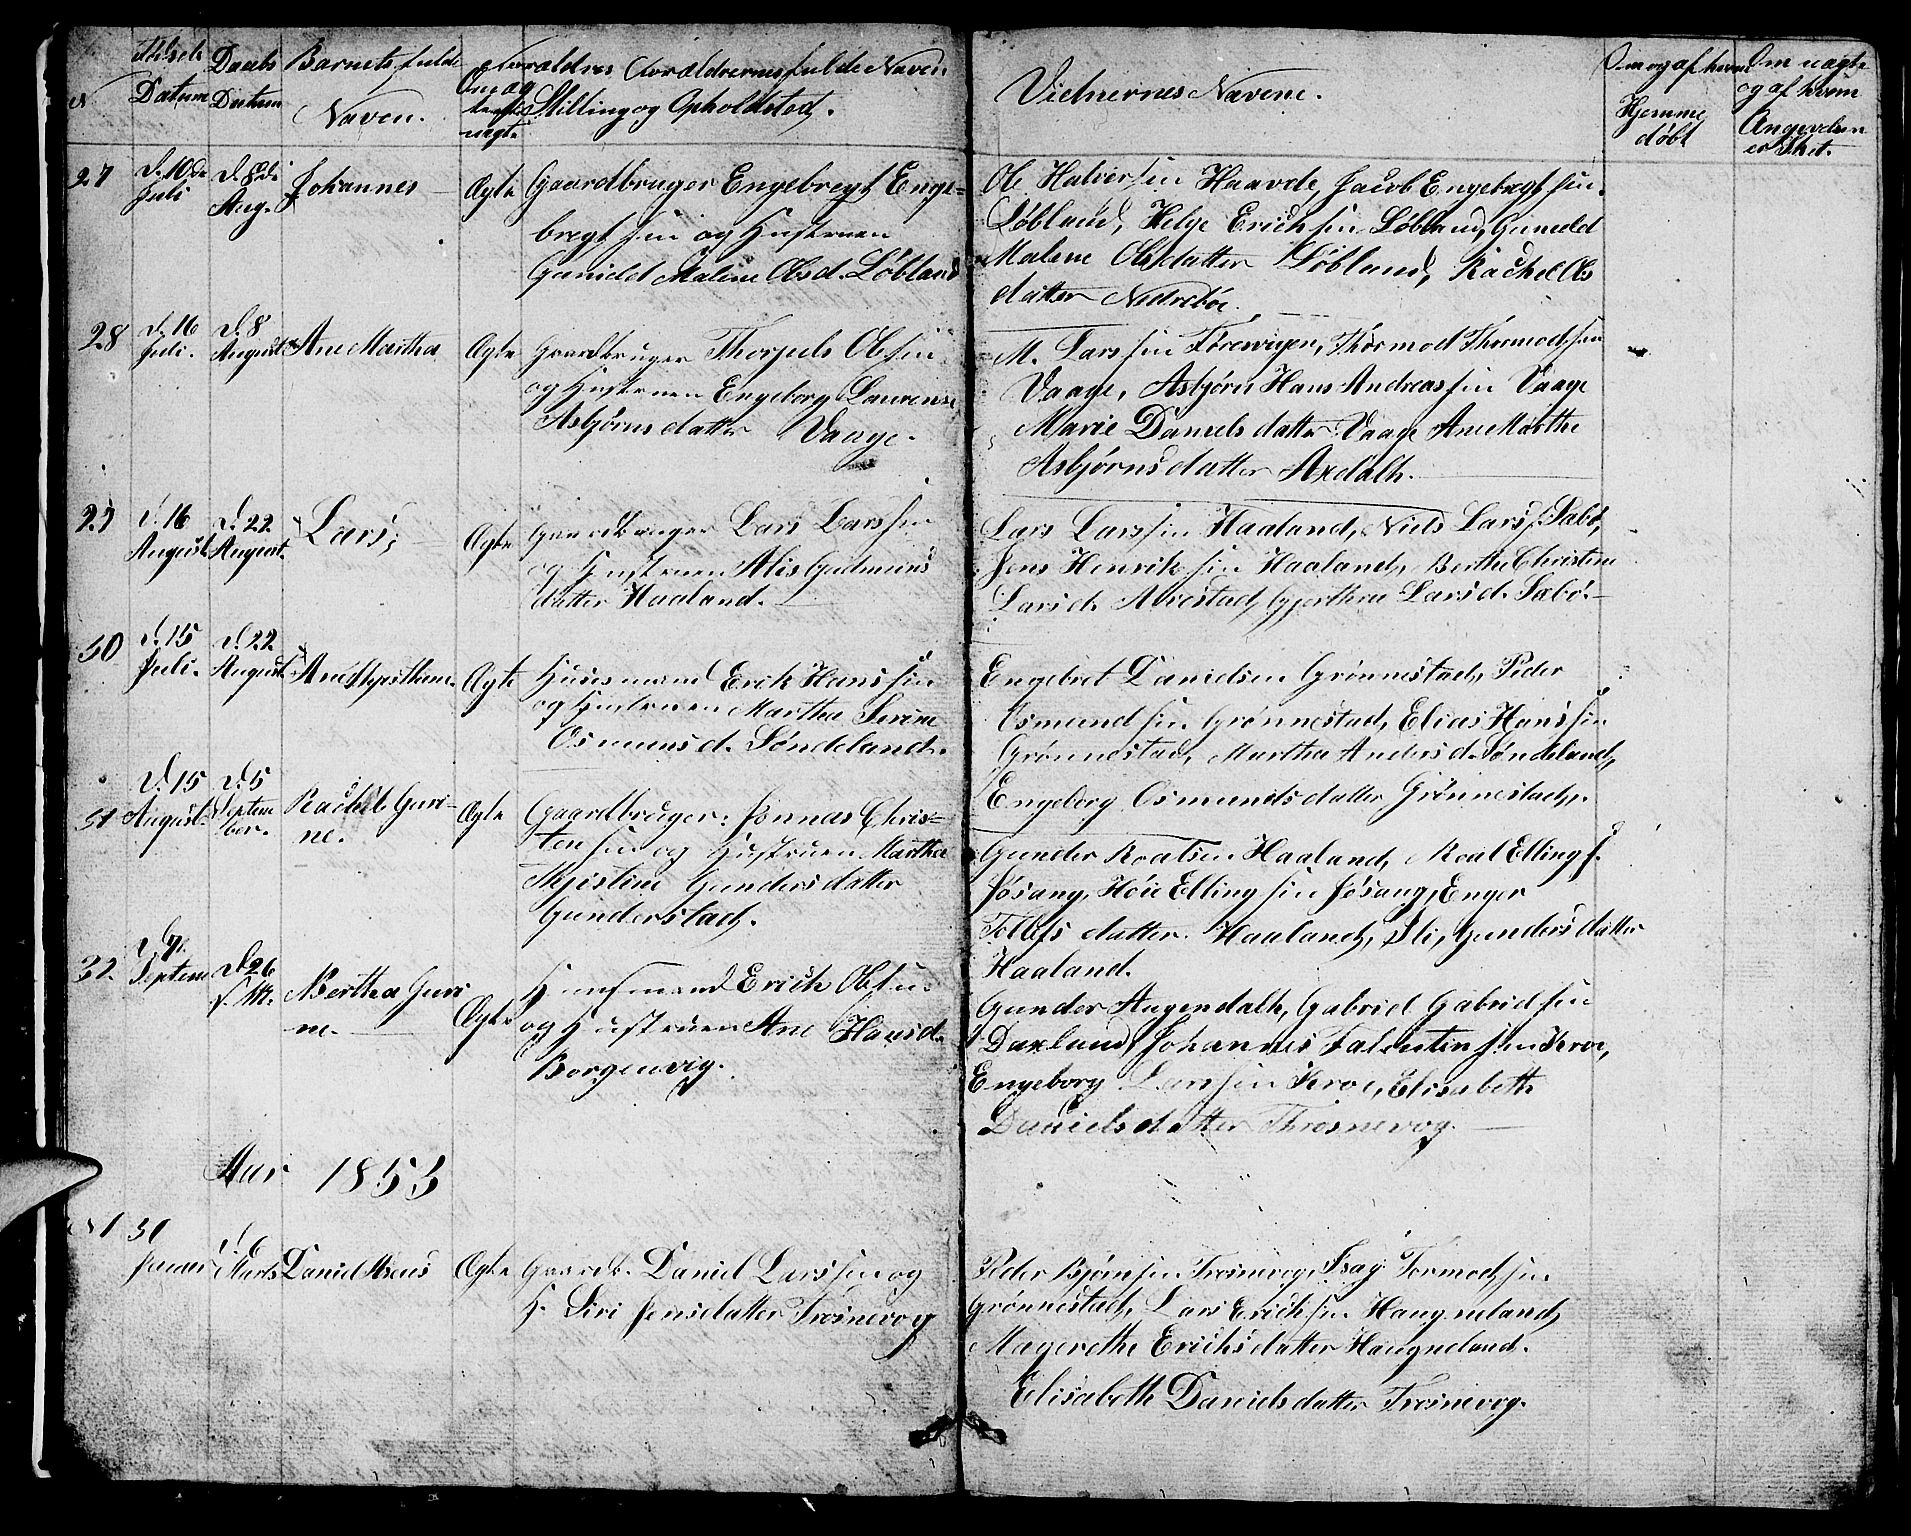 N
Datum
Daabs
Datum
Barnets fulde
Navn.
Forældernes fulde Navn
Stilling og Opholdsted.
Vidnernes Navne.
Om og af hvem
Hjemme
døbt
Om uægte
og af hvem
Angivelsen
er skeet.
27
d. 10de
Juli
d. 8de
Aug.
Johannes
Ægte
Gaardbruger Engebregt Enge-
bregtsen og Hustruen
Gunild Malene Olsd. Løbland
Ole Halversen Haavde, Jacob Engebregtsen
Løbland, Helge Erichsen Løbland, Gunild
Malene Olsdatter Løbland, Rachel Ols
datter Nedrebøe.
28
d. 16
Juli.
d. 8
August
Ane Martha
Ægte
Gaardbruger Thorjuls Olsen
og Hustruen Engeborg Laurense
Asbjørnsdatter Vaage.
M. Larssen Førrevigen, Thormod Thormodsen
Vaage, Asbjørn Hans Andreassen Vaage
Marie Danielsdatter Vaage Ane Marthe
Asbjørnsdatter Axdalh.
29
d. 16
August
d. 22
August.
Lars,
Ægte
Gaardbruger Lars Larssen
og Hustruen Alis Gudmuns
datter Haaland.
Lars Larssen Haaland, Niels Lars. Sabø,
Jens Henriksen Haaland, Berthe Christine
Larsd. Aurestad, Gjerthru Larsd. Sæbø.
30
d. 15
Juli.
d. 22
August.
Ane
Ægte
Huusmand Erik Hanssen
og Hustruen Martha Serine
Osmunsd. Søndeland.
Engebret Danielsen Grønnestad, Peder
Osmundsen Grønnestad, Elias Hanssen
Grønnestad, Martha Andersd. Søndeland,
Engeborg Osmundsdatter Grønnestad.
31
d. 15
August.
d. 5
Septem
ber.
Rachel Guri-
ne.
Ægte
Gaardbruger: Jonnas Chris-
tensen og Hustruen Martha
Thjistine Gundersdatter
Gunderstad.
Gunder Roalsen Haaland, Roal Elling s.
Jøsang, Høie Ellingsen Jøsang, Enger
Tollefsdatter Haaland, Sli, Gundersdatter
Haaland.
32
d. 7
Septem
d. 26
Berthea Guri
ne.
Ægte
Huusmand Erich Olsen
og Hustruen Ane Hansd.
Borgenvig.
Gunder Augendalh, Gabriel Gabrielsen
Daxland, Johannes Falentinsen Kroe,
Engeborg Larssen Kroe, Elisabeth
Danielsdatter Throsnevog.
Aar 1853
N 1
31
Januar
d. 6
Marts
Daniel
Ægte
Gaardb. Daniel Larssen og
H. Siri Jensdatter Trosnevog
Peder Bjørnsen Trosnevog, Tormodsen
Grønnestad, Lars Erichsen Haugneland,
Magrethe Erichsdatter Haugneland.
Elisabeth Danielsdatter Trosnevog.